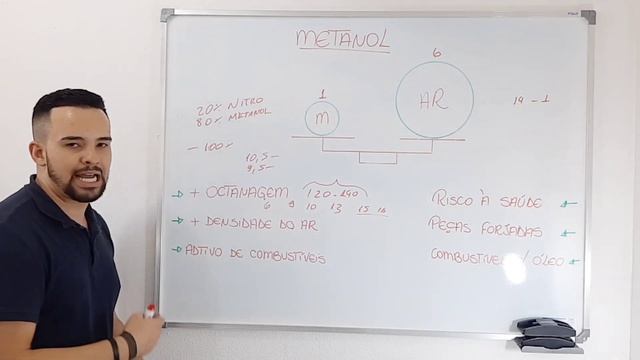 METANOL
6
1
AR
m
14 - 1
20% NITRO
80% METANOL
- 100%
10,5 -
9,5 -
+ OCTANAGEM 120-140
6 9 10 13 15 16
+ DENSIDADE DO AR
ADTIVO DE COMBUSTÍVEIS
RISCO À SAÚDE
PEÇAS FORJADAS
COMBUSTIVEL / ÓLEO